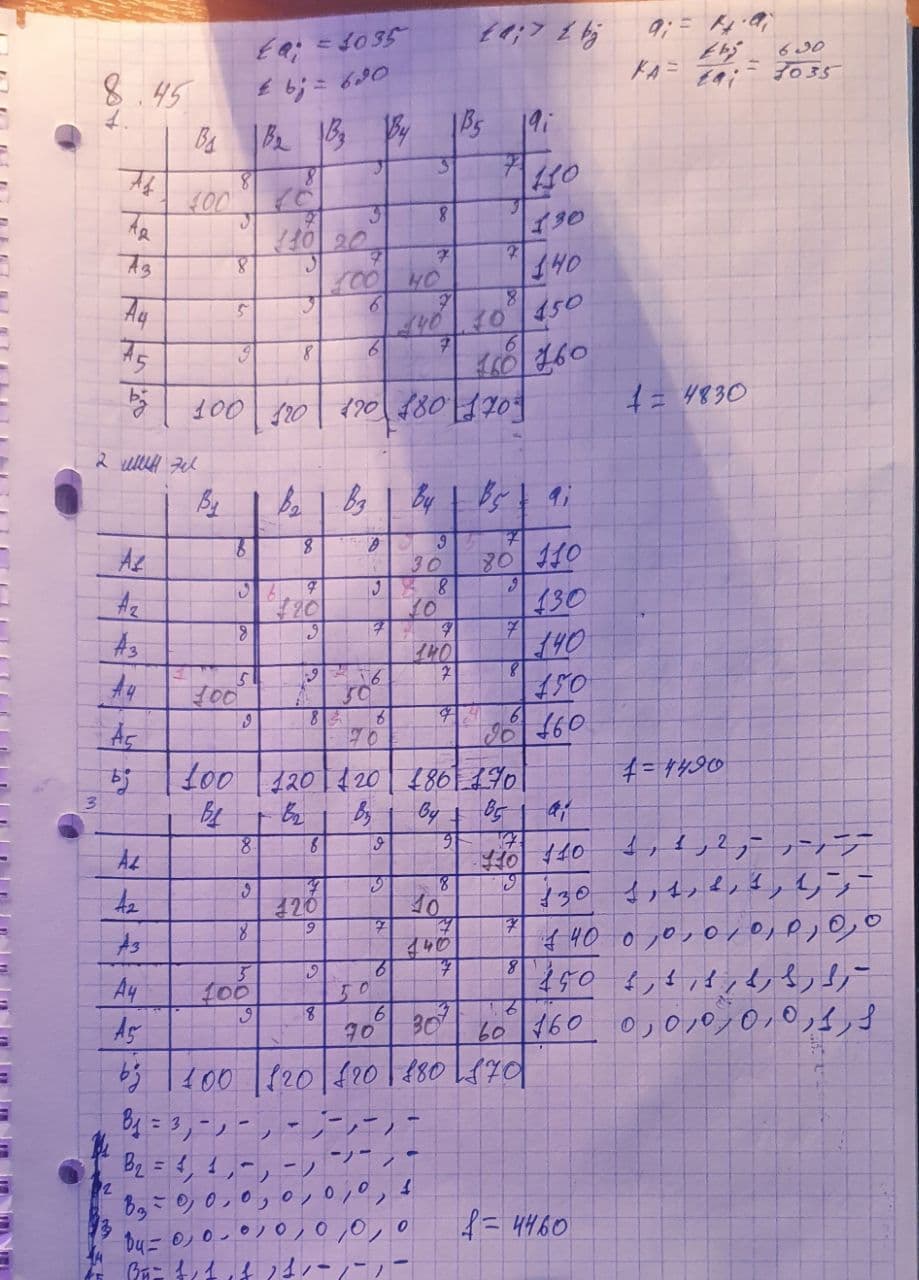 Σ ai = 1035 Σ ai > Σ bj ai = KA · ai
Σ bj = 690 KA = Σbj / Σai = 690 / 1035
8.45
1.
B1 B2 B3 B4 B5 ai
A1 8 100 8 10 9 9 7 110
A2 9 7 110 9 20 8 9 130
A3 8 9 7 100 7 40 7 140
A4 5 9 6 7 140 8 10 150
A5 9 8 6 7 6 160 160
bj 100 120 120 180 170
f = 4830
2 мин эл
B1 B2 B3 B4 B5 ai
A1 8 8 9 9 30 7 80 110
A2 9 6 7 120 9 8 8 10 9 130
A3 8 9 7 7 140 7 140
A4 1 5 100 9 2 6 50 7 8 150
A5 9 8 3 6 70 7 4 6 90 160
bj 100 120 120 180 170
f = 4490
3
B1 B2 B3 B4 B5 ai
A1 8 8 9 9 7 110 110 1, 1, 2, -, -, -, -
A2 9 7 120 9 8 10 9 130 1, 1, 1, 1, 1, -, -
A3 8 9 7 7 140 7 140 0, 0, 0, 0, 0, 0, 0
A4 5 100 9 6 50 7 8 150 1, 1, 1, 1, 1, 1, -
A5 9 8 6 70 7 30 6 60 160 0, 0, 0, 0, 0, 1, 1
bj 100 120 120 180 170
B1 = 3, -, -, -, -, -, -
B2 = 1, 1, -, -, -, -, -
B3 = 0, 0, 0, 0, 0, 0, 1
B4 = 0, 0, 0, 0, 0, 0, 0
f = 4460
B5 = 1, 1, 1, 1, -, -, -